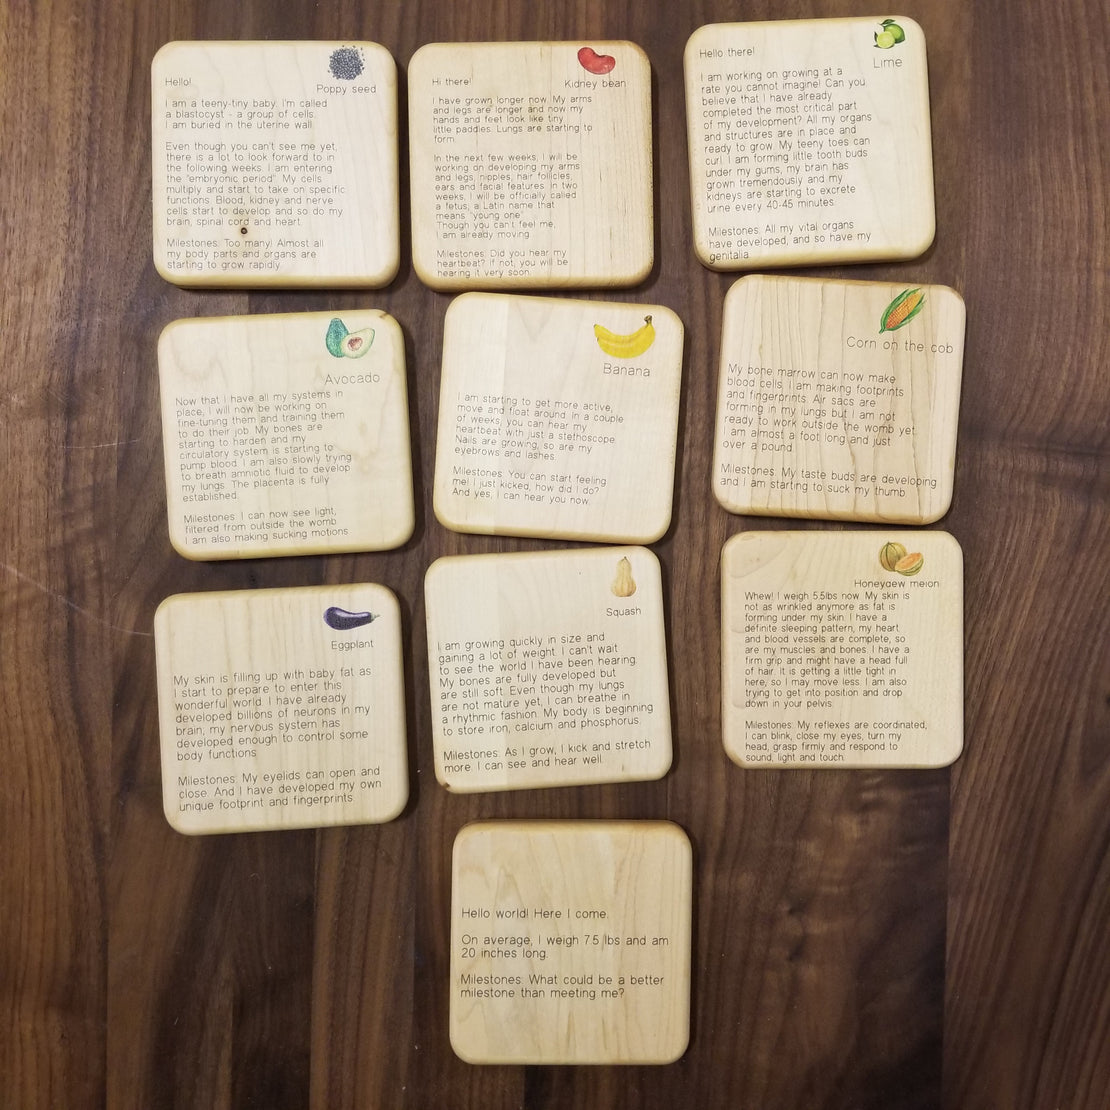 Hello!
Poppy seed
I am a teeny-tiny baby. I'm called
a blastocyst - a group of cells.
I am buried in the uterine wall.
Even though you can't see me yet,
there is a lot to look forward to in
the following weeks. I am entering
the "embryonic period". My cells
multiply and start to take on specific
functions. Blood, kidney and nerve
cells start to develop and so do my
brain, spinal cord and heart.
Milestones: Too many! Almost all
my body parts and organs are
starting to grow rapidly.
Hi there!
Kidney bean
I have grown longer now. My arms
and legs are longer and now my
hands and feet look like tiny
little paddles. Lungs are starting to
form.
In the next few weeks, I will be
working on developing my arms
and legs, nipples, hair follicles,
ears and facial features. In two
weeks, I will be officially called
a fetus, a Latin name that
means "young one".
Though you can't feel me,
I am already moving.
Milestones: Did you hear my
heartbeat? If not, you will be
hearing it very soon.
Hello there!
Lime
I am working on growing at a
rate you cannot imagine! Can you
believe that I have already
completed the most critical part
of my development? All my organs
and structures are in place and
ready to grow. My teeny toes can
curl. I am forming little tooth buds
under my gums, my brain has
grown tremendously and my
kidneys are starting to excrete
urine every 40-45 minutes.
Milestones: All my vital organs
have developed, and so have my
genitalia.
Avocado
Now that I have all my systems in
place, I will now be working on
fine-tuning them and training them
to do their job. My bones are
starting to harden and my
circulatory system is starting to
pump blood. I am also slowly trying
to breath amniotic fluid to develop
my lungs. The placenta is fully
established.
Milestones: I can now see light,
filtered from outside the womb.
I am also making sucking motions.
Banana
I am starting to get more active,
move and float around. In a couple
of weeks, you can hear my
heartbeat with just a stethoscope.
Nails are growing, so are my
eyebrows and lashes.
Milestones: You can start feeling
me! I just kicked, how did I do?
And yes, I can hear you now.
Corn on the cob
My bone marrow can now make
blood cells. I am making footprints
and fingerprints. Air sacs are
forming in my lungs but I am not
ready to work outside the womb yet.
I am almost a foot long and just
over a pound.
Milestones: My taste buds are developing
and I am starting to suck my thumb.
Eggplant
My skin is filling up with baby fat as
I start to prepare to enter this
wonderful world. I have already
developed billions of neurons in my
brain, my nervous system has
developed enough to control some
body functions.
Milestones: My eyelids can open and
close. And I have developed my own
unique footprint and fingerprints.
Squash
I am growing quickly in size and
gaining a lot of weight. I can't wait
to see the world I have been hearing.
My bones are fully developed but
are still soft. Even though my lungs
are not mature yet, I can breathe in
a rhythmic fashion. My body is beginning
to store iron, calcium and phosphorus.
Milestones: As I grow, I kick and stretch
more. I can see and hear well.
Honeydew melon
Whew! I weigh 5.5lbs now. My skin is
not as wrinkled anymore as fat is
forming under my skin. I have a
definite sleeping pattern, my heart
and blood vessels are complete, so
are my muscles and bones. I have a
firm grip and might have a head full
of hair. It is getting a little tight in
here, so I may move less. I am also
trying to get into position and drop
down in your pelvis.
Milestones: My reflexes are coordinated,
I can blink, close my eyes, turn my
head, grasp firmly and respond to
sound, light and touch.
Hello world! Here I come.
On average, I weigh 7.5 lbs and am
20 inches long.
Milestones: What could be a better
milestone than meeting me?